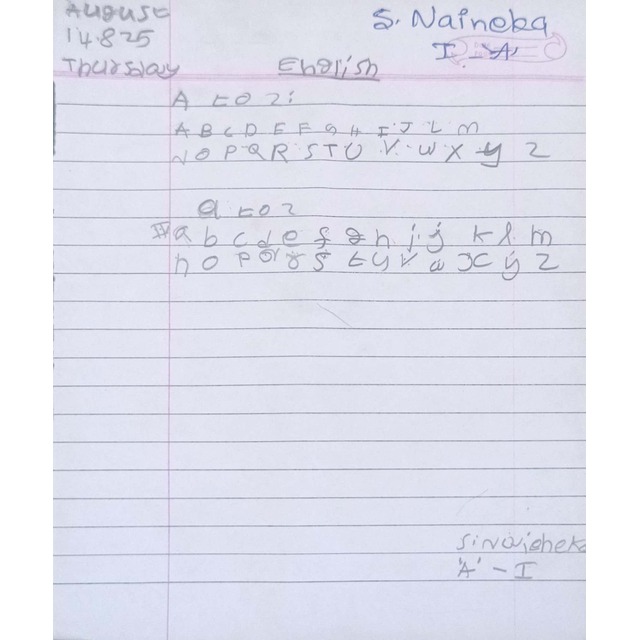 August
14.825
Thursday
S. Naineka
I - 'A'
English
A to z:
A B C D E F G H I J L M
N O P Q R S T U V W X y Z
a to z
a b c d e f g h i j k l m
n o p q r s t u v w x y z
'A' - I